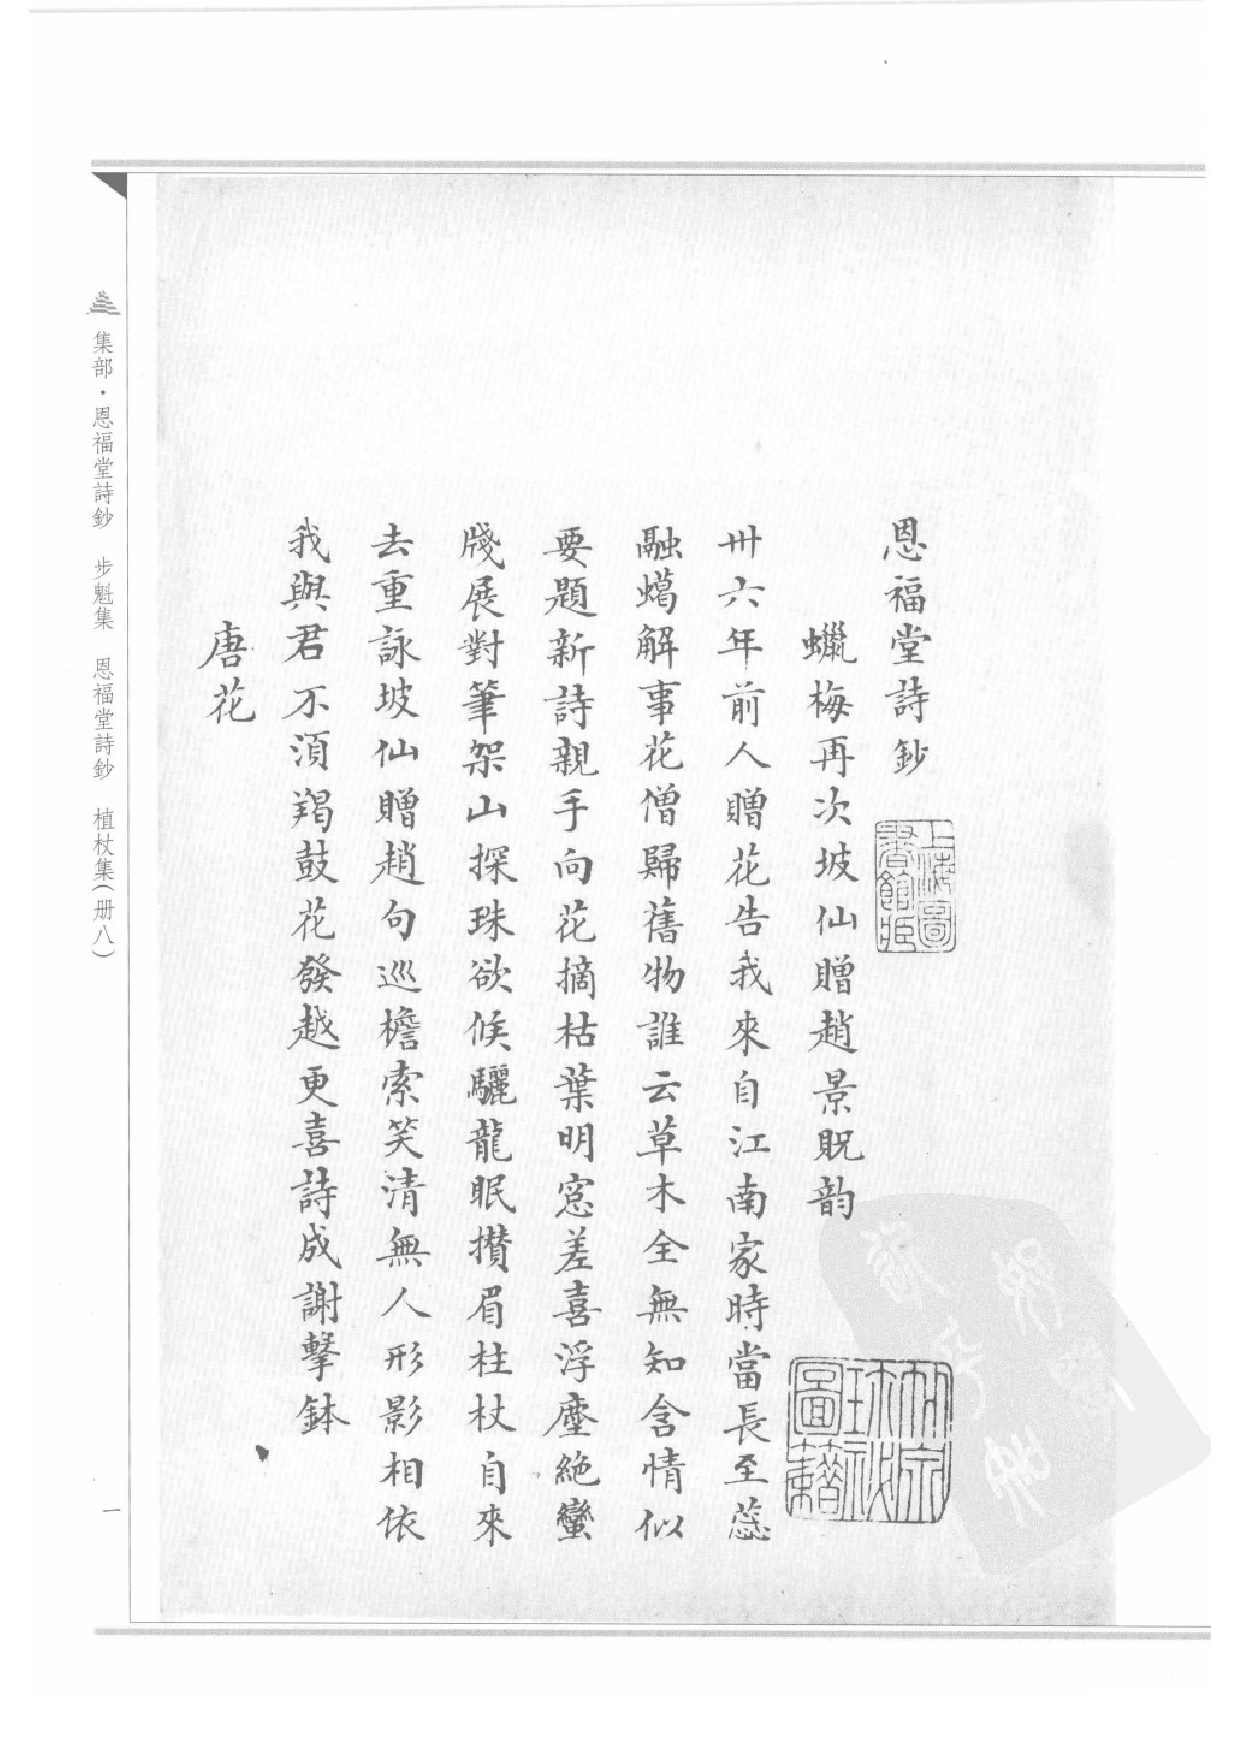 恩福堂詩鈔
上海圖書館藏
蠟梅再次坡仙贈趙景貺韵
卅六年前人贈花告我來自江南家時當長至蕊
融蠟解事花僧歸舊物誰云草木全無知含情似
要題新詩親手向花摘枯葉明窓差喜浮塵絶蠻
牋展對筆架山探珠欲候驪龍眠攢眉柱杖自來
去重詠坡仙贈趙句巡檐索笑清無人形影相依
我與君不須羯鼓花發越更喜詩成謝擊鉢
唐花
集部·恩福堂詩鈔 步魁集 恩福堂詩鈔 植杖集(册八)
一